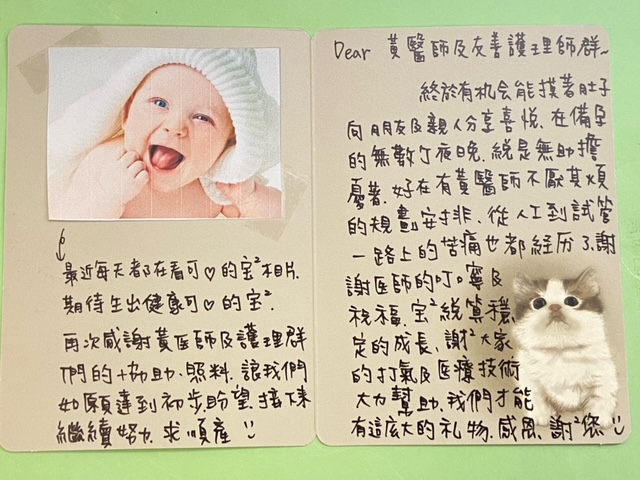 Dear 黃醫師及友善護理師群~
終於有机会能摸著肚子
向朋友及親人分享喜悅. 在備孕
的無數个夜晚, 總是無助、擔
憂著. 好在有黃醫師不厭其煩
的親自安排, 從人工到試管
一路上的苦痛也都經历了, 謝
謝医師的叮嚀及
祝福, 宝²終算穩
定的成長, 謝²大家
的打氣及医療技術
大力幫助, 我們才能
有這麼大的礼物. 感恩. 謝²您 :)
最近每天都在看可♡的宝²相片.
期待生出健康可♡的宝².
再次感謝黃医師及護理群
們的協助、照料, 讓我們
如願達到初步的希望. 接下來
繼續努力. 求順產 :)